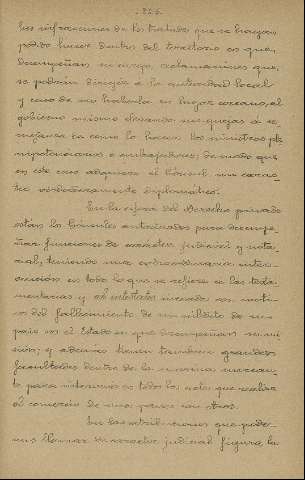 las infracciones de los tratados que se hayan
podido hacer dentro del territorio en que
desempeñan su cargo, reclamaciones que
se podrán dirigir a la autoridad local
y caso de no hallarla en lugar cercano, al
gobierno mismo elevando sus quejas a se
mejanza de como lo hacen los ministros ple
nipotenciarios o embajadores; de modo que
en este caso adquiere el Cónsul un carac
ter verdaderamente diplomático.
En la esfera del Derecho privado
están los Cónsules autorizados para desempe
ñar funciones de carácter judicial y nota
rial, teniendo una extraordinaria inter
vención en todo lo que se refiere a las testa
mentarías y ab intestatos incoados con moti
vo del fallecimiento de un súbdito de su
país en el Estado en que desempeñan su mi
sión; y además tienen también grandes
facultades dentro de la marina mercan
te para intervenir en todos los actos que realiza
el comercio de unos países con otros.
En las atribuciones que pode
mos llamar de carácter judicial figura la